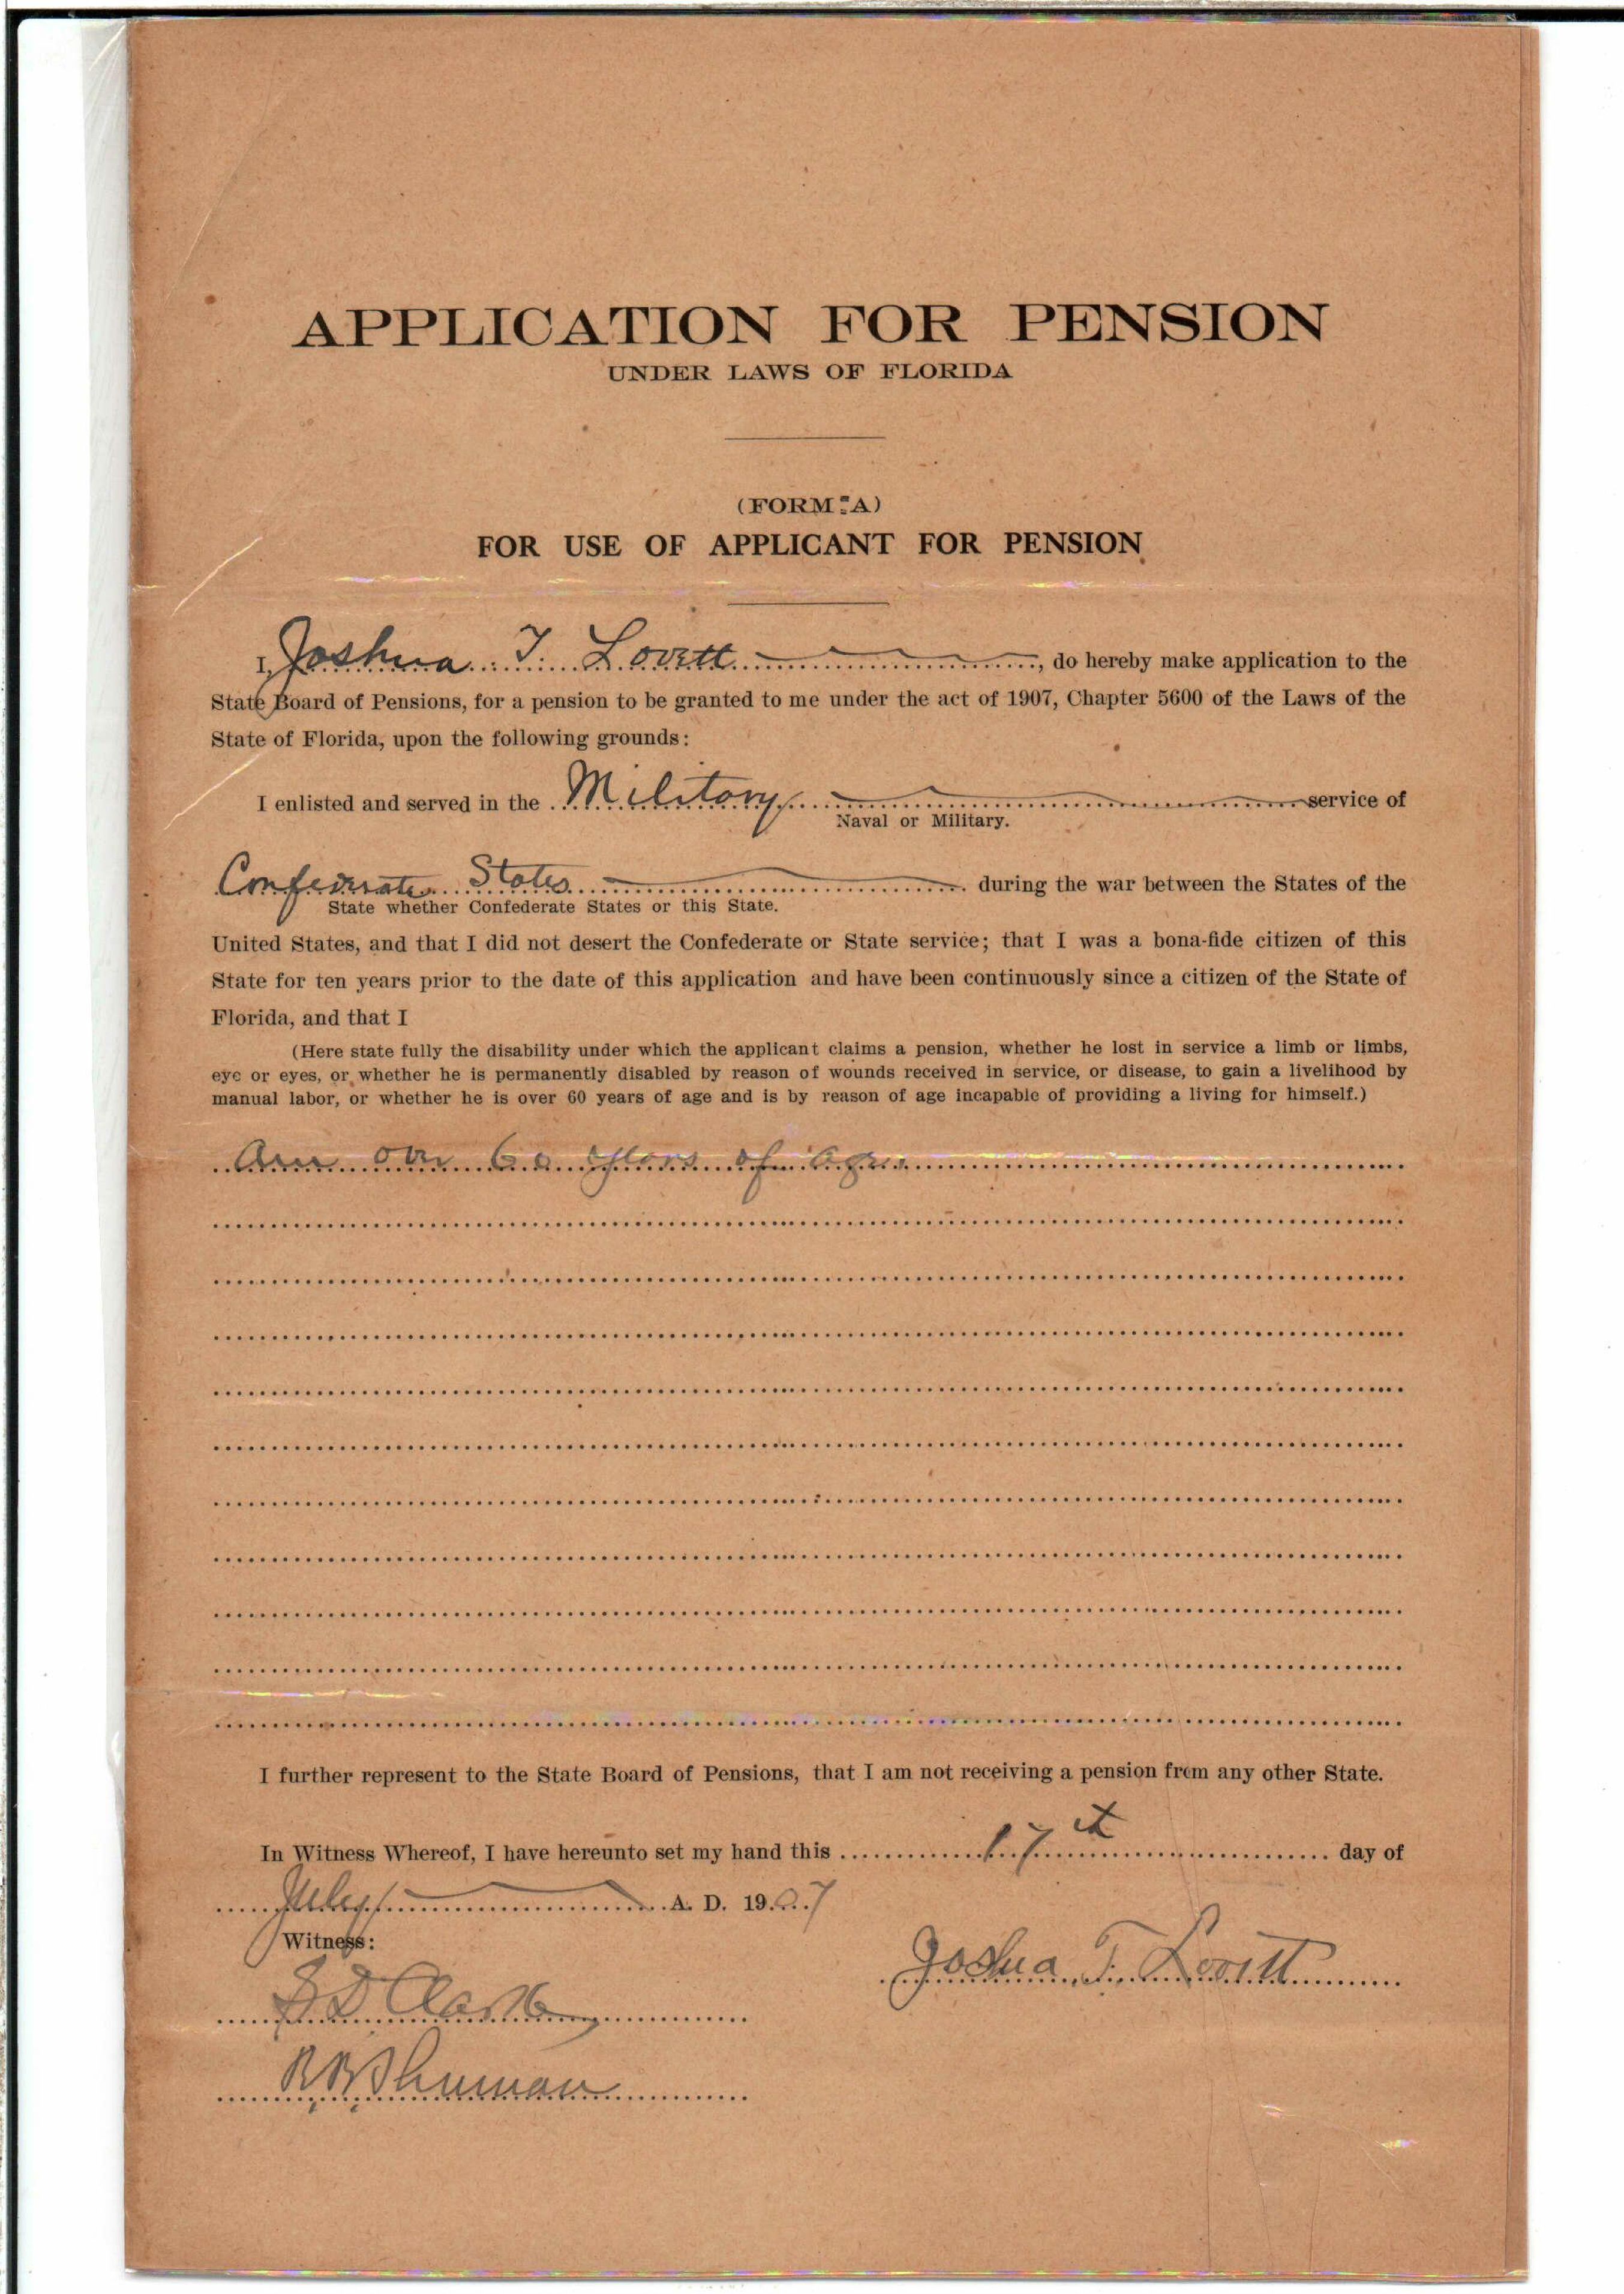 APPLICATION FOR PENSION
UNDER LAWS OF FLORIDA
(FORM A)
FOR USE OF APPLICANT FOR PENSION
I, Joshua T. Lovett, do hereby make application to the
State Board of Pensions, for a pension to be granted to me under the act of 1907, Chapter 5600 of the Laws of the
State of Florida, upon the following grounds:
I enlisted and served in the Military service of
Naval or Military.
Confederate States during the war between the States of the
State whether Confederate States or this State.
United States, and that I did not desert the Confederate or State service; that I was a bona-fide citizen of this
State for ten years prior to the date of this application and have been continuously since a citizen of the State of
Florida, and that I
(Here state fully the disability under which the applicant claims a pension, whether he lost in service a limb or limbs,
eye or eyes, or whether he is permanently disabled by reason of wounds received in service, or disease, to gain a livelihood by
manual labor, or whether he is over 60 years of age and is by reason of age incapable of providing a living for himself.)
Am over 60 years of age
I further represent to the State Board of Pensions, that I am not receiving a pension from any other State.
In Witness Whereof, I have hereunto set my hand this 17th day of
July A. D. 1907
Witness:
Joshua T. Lovett
Clark
Shuman